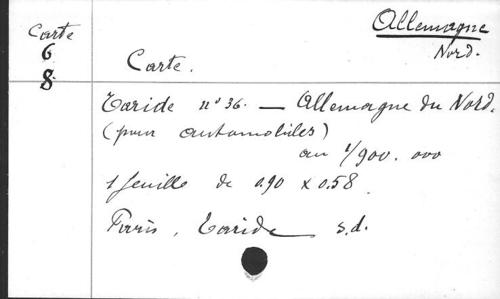 Allemagne
Nord.
Carte
6
8
Carte.
Taride n° 36. — Allemagne du Nord.
(pour automobiles)
au 1/900.000
1 feuille de 0.90 x 0.58
Paris, Taride s.d.